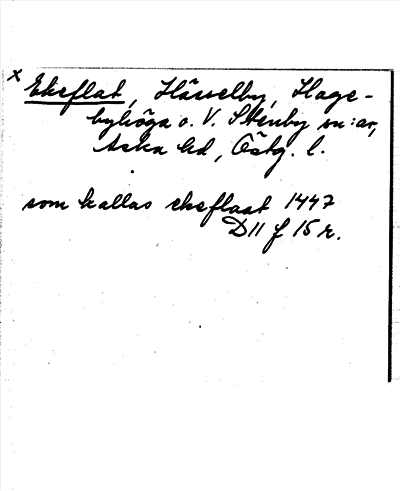 x
Ekeflat, Hässelby, Hage-
byhöga o. V. Stenby sn:ar,
Aska hd, Östg. l.
som kallas ekeflaat 1447
D11 f 15 r.